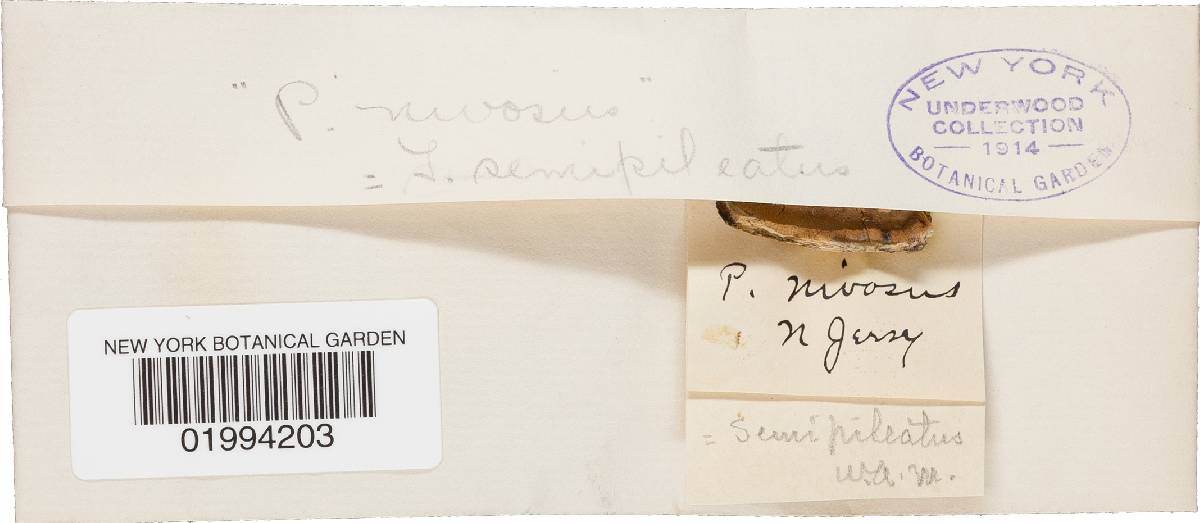 "P. nivosus"
= T. semipileatus
NEW YORK
UNDERWOOD
COLLECTION
— 1914 —
BOTANICAL GARDEN
P. nivosus
N Jersy
= Semipileatus
W.A.M.
NEW YORK BOTANICAL GARDEN
01994203